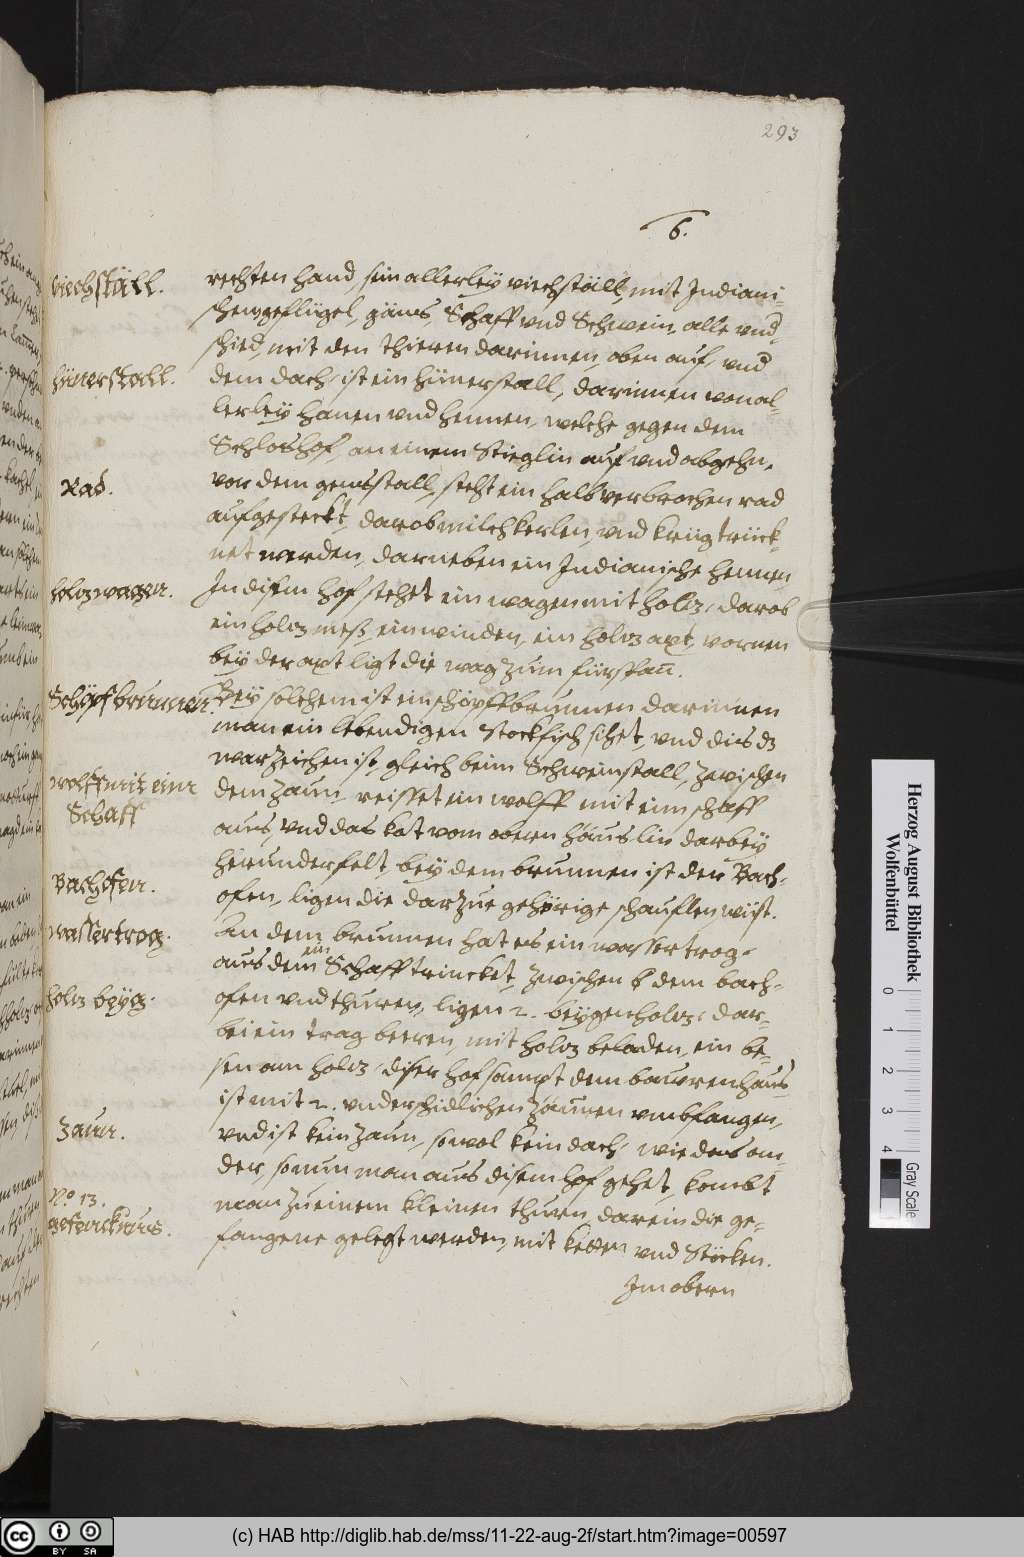 293
6.
viechställ.
rechten hand sein allerley viechställ, mit Indiani-
schengeflügel, gäns, Schaff vnd Schwein, alle vnd-
schied, mit den thieren darinnen, oben auf, vnd
hünerstall.
dem dach, ist ein hünerstall, darinnen von al-
lerley hanen vnd hennen, welche gegen dem
Schloshof, an einem Stieglin auf vnd abgehn,
Rad.
vor dem genssstall, steht ein halb verbrochen rad
aufgesteckt, darob milchkerlen, vnd krüg trück-
net werden, darneben ein Indianische hennen
holtzwagen.
In disem hof stehet ein wagen mit holtz, darob
ein holtz meß, ein winden, ein holtz axt, vornen
bey der axt ligt die wag zum fürspan.
Schöpfbrunnen.
Bey solchem ist ein schöpffbrunnen darinnen
man ein lebendigen Stockfisch sihet, vnd dis dz
warzeichen ist, gleich beim Schweinstall, zwischen
wolff mit eim
Schaff
dem zaun, reisset ein wolff mit eim schaff
aus, vnd das kat vom obern häuslin darbey
herunderfelt, bey dem brunnen ist der Bach-
Bachofen.
ofen, ligen die darzue gehörige schauflen, wüst.
wassertrog.
An dem brunnen hat es ein wassertrog,
aus dem ein Schaff trincket, zwischen dem bach-
holtz beyg.
ofen vnd thuren, ligen 2. beygen holtz, dar-
bei ein trag beeren, mit holtz beladen, ein be-
sen am holtz, diser hof sampt dem baurenhaus
ist mit 2. vnderschidlichen zäunen vmbfangen,
Zaun.
vnd ist kein zaun, sowol kein dach, wie das an-
der, so nun man aus disem hof gehet, kombt
No. 13.
gefencknus.
man zu einem kleinen thurn, darein die ge-
fangene gelegt werden, mit ketten vnd Stöcken.
Im obern
Herzog August Bibliothek
Wolfenbüttel
0 1 2 3 4
Gray Scale
BY SA
(c) HAB http://diglib.hab.de/mss/11-22-aug-2f/start.htm?image=00597